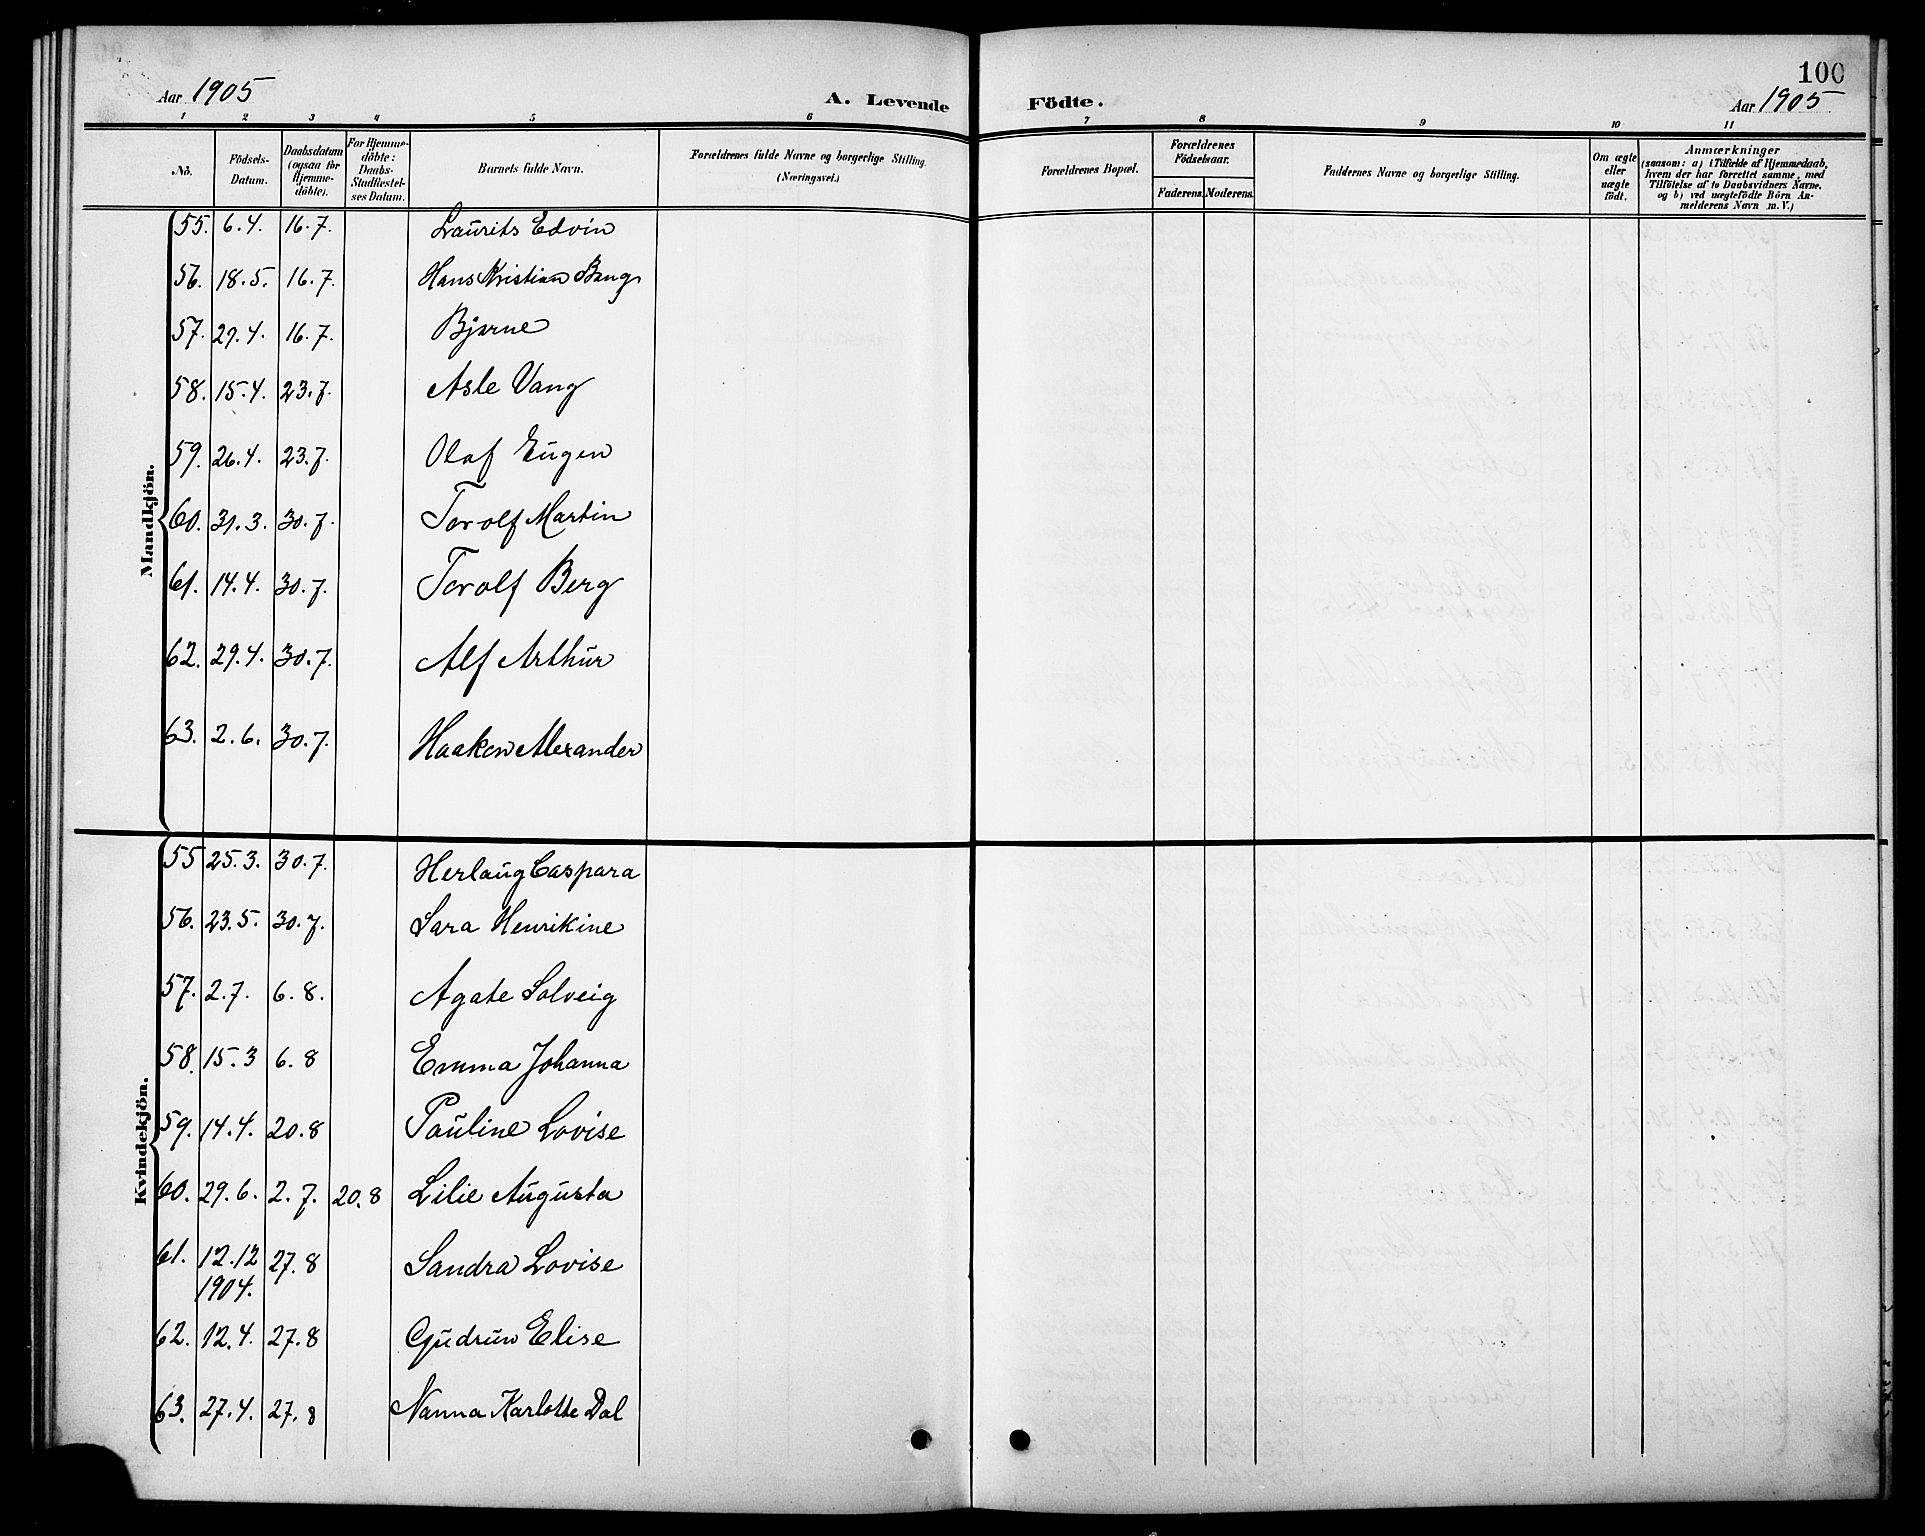 100
Aar 1905
A. Levende Födte.
Aar 1905
1 2 3 4 5 6 7 8 9 10 11
No.
Födsels-
Datum.
Daabsdatum
(ogsaa for
Hjemme-
döbte).
For Hjemme-
döbte:
Daabs-
Stadfæstel-
ses Datum.
Barnets fulde Navn.
Forældrenes fulde Navne og borgerlige Stilling.
(Næringsvei.)
Forældrenes Bopæl.
Forældrenes
Födselsaar.
Faderens. Moderens.
Faddernes Navne og borgerlige Stilling.
Om ægte
eller
uægte
födt.
Anmærkninger
(saasom: a) i Tilfælde af Hjemmedaab,
hvem der har forrettet samme, med
Tilföielse af to Daabsvidners Navne,
og b) ved uægtefödte Börn An-
melderens Navn m. V.)
Mandkjön.
55. 6.4. 16.7. Laurits Edvin
56. 18.5. 16.7. Hans Kristian Bang
57. 29.4. 16.7. Bjarne
58. 15.4. 23.7. Asle Vang
59. 26.4. 23.7. Olaf Eugen
60. 31.3. 30.7. Torolf Martin
61. 14.4. 30.7. Torolf Berg
62. 29.4. 30.7. Alf Arthur
63. 2.6. 30.7. Haakon Alexander
Kvindekjön.
55 25.3. 30.7. Herlaug Caspara
56. 23.5. 30.7. Sara Henrikine
57. 2.7. 6.8. Agate Solveig
58. 15.3 6.8 Emma Johanna
59. 14.4. 20.8 Pauline Lovise
60. 29.6. 2.7. 20.8 Lilie Augusta
61. 12.12 27.8 Sandra Lovise
1904.
62. 12.4. 27.8 Gudrun Elise
63. 27.4. 27.8 Nanna Karlotte Dal